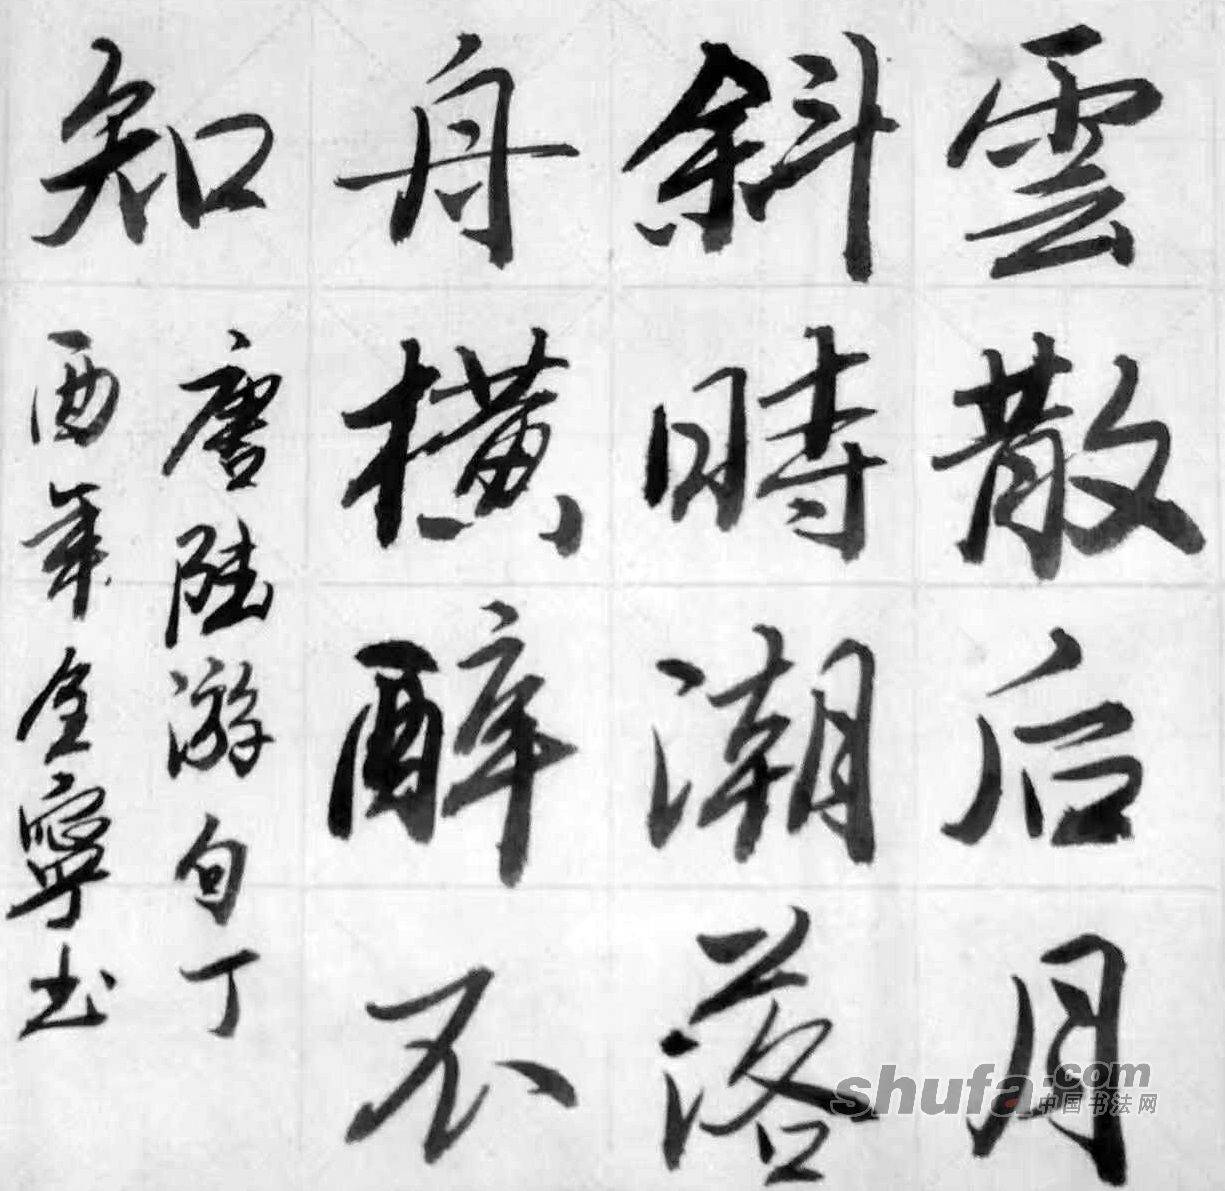 雲散后月
斜時潮落
舟橫醉不
知
唐陸游句丁
酉年全寧书
shufa.com
中国书法网